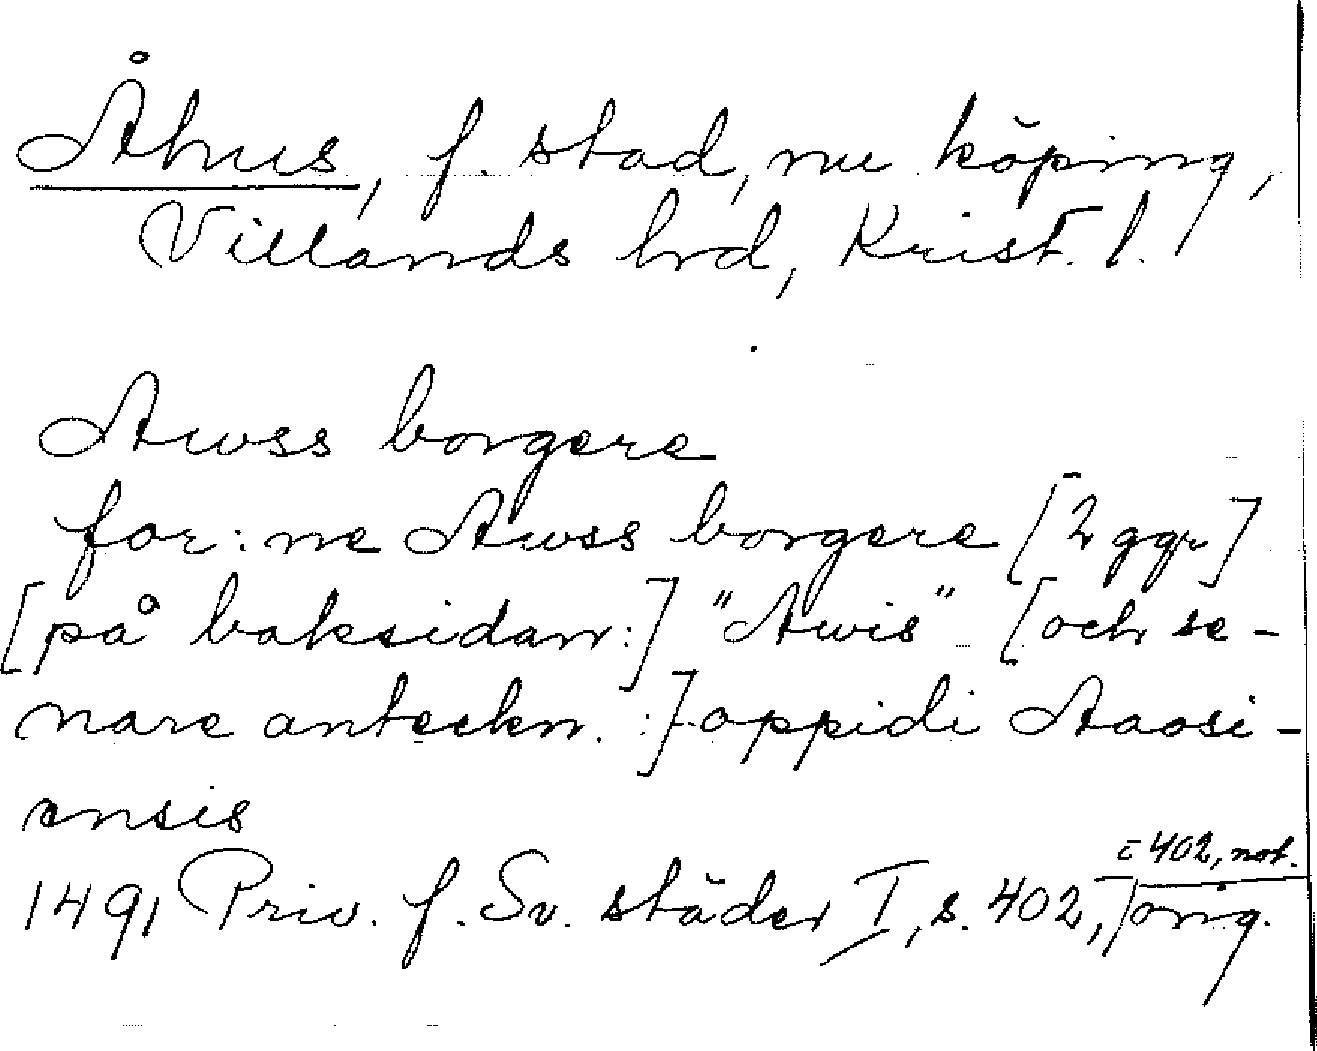 Åhus, f. stad, nu köping,
Villands hrd, Krist. l.
Awss borgere
for:ne Awss borgere [2 ggr]
[på baksidan:] "Awis" [och se-
nare anteckn. :] oppidi Aaosi-
ensis
1491 Priv. f. Sv. städer I, s. 402, orig.
402, not.